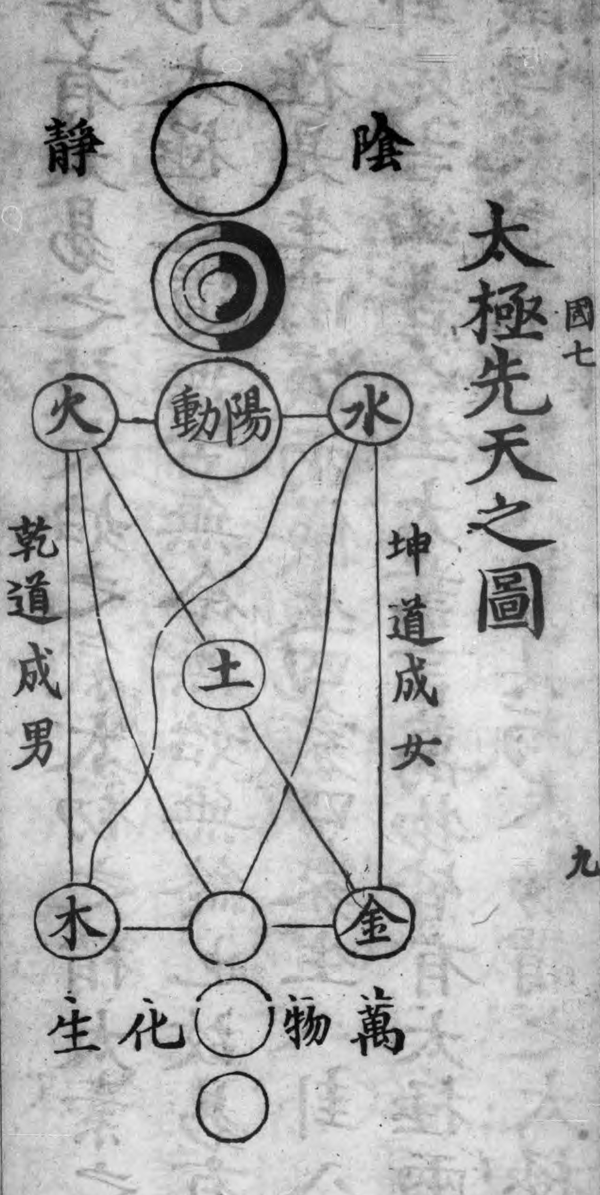 國七
九
太極先天之圖
陰靜
陽動
水
火
坤道成女
乾道成男
土
金
木
萬物化生